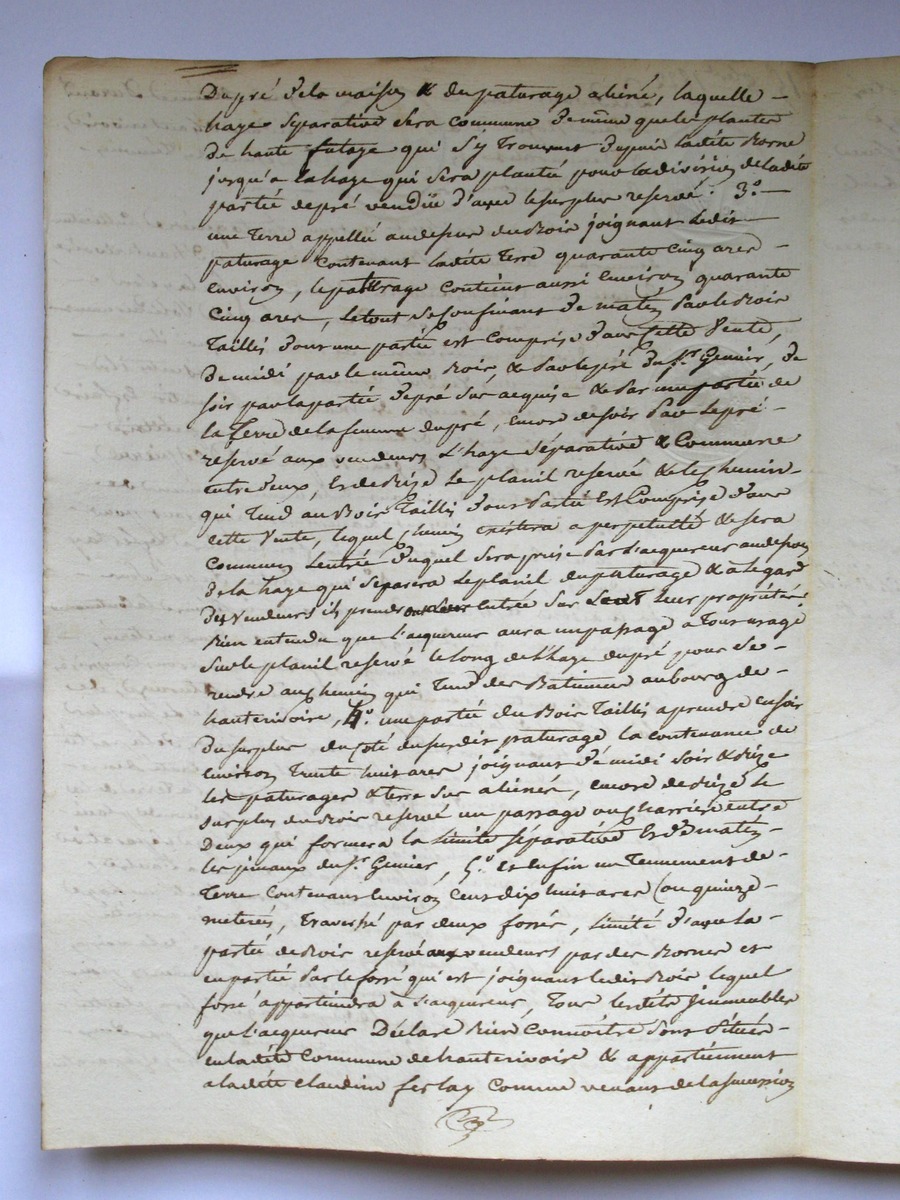 Dupré de la maison & du paturage aliéné, laquelle -
haye séparative sera commune de même que les plantes
de haute futage qui s'y trouvent depuis ladite Borne
jusqu'a la haye qui sera plantée pour la division de ladite
partie de pré vendüe d'avec le surplus reservé. 3.° -
une Terre appellée au dessus du Bois joignant ledit -
paturage contenant ladite Terre quarante cinq ares -
environ, le paturage contient aussi environ quarante
cinq ares, le tout se confinant de matin par le Bois
Taillis dont une partie est comprise dans cette Vente,
de midi par le même Bois, & par le pré du S.r Genier, de
soir par la partie de pré sus acquise & par une partie de
la Terre de la femme dupré, encore de soir par le pré -
reservé aux vendeurs l'haye séparative & Commune
entre d'eux, et de Bize le planil reservé & le chemin
qui Tend au Bois Taillis dont partie Est Comprise dans
cette Vente, lequel chemin existera a perpetuité & sera
commun l'entrée duquel sera prise par l'acquereur au dessous
de la haye qui séparera le planil du paturage & a légard
des Vendeurs ils prendront leur entrée sur leur propriété
Bien entendu que l'acquereur aura un passage a Tout usage
sur le planil reservé le long de l'haye du pré pour se -
rendre au chemin qui Tend des Batimens au bourg de -
hauterivoire, 4.° une partie du Bois Taillis a prendre en soir
du surplus du côté du susdit paturage la contenance de
environ trente huit ares joignant de midi soir & Bize
les paturages & terre sus aliénés, encore de Bize le
surplus du Bois reservé un passage ou Charriere entre
deux qui formera la limite séparative Et de matin -
les jmeaux du S.r Genier, 5.° et enfin un Tennement de -
Terre contenant environ cent dix huit ares (ou quinze -
meterées, traversé par deux fossés, limité d'avec la -
partie de Bois reservée aux vendeurs par des Bornes et
en partie par le fossé qui est joignant ledit Bois lequel
fossé appartiendra à l'acquereur, Tous lesdits jmmeubles
que l'acquereur Déclare Bien Connoître sont situés -
en ladite Commune de hauterivoire & appartiennent
a ladite claudine ferlay comme venant de la succession